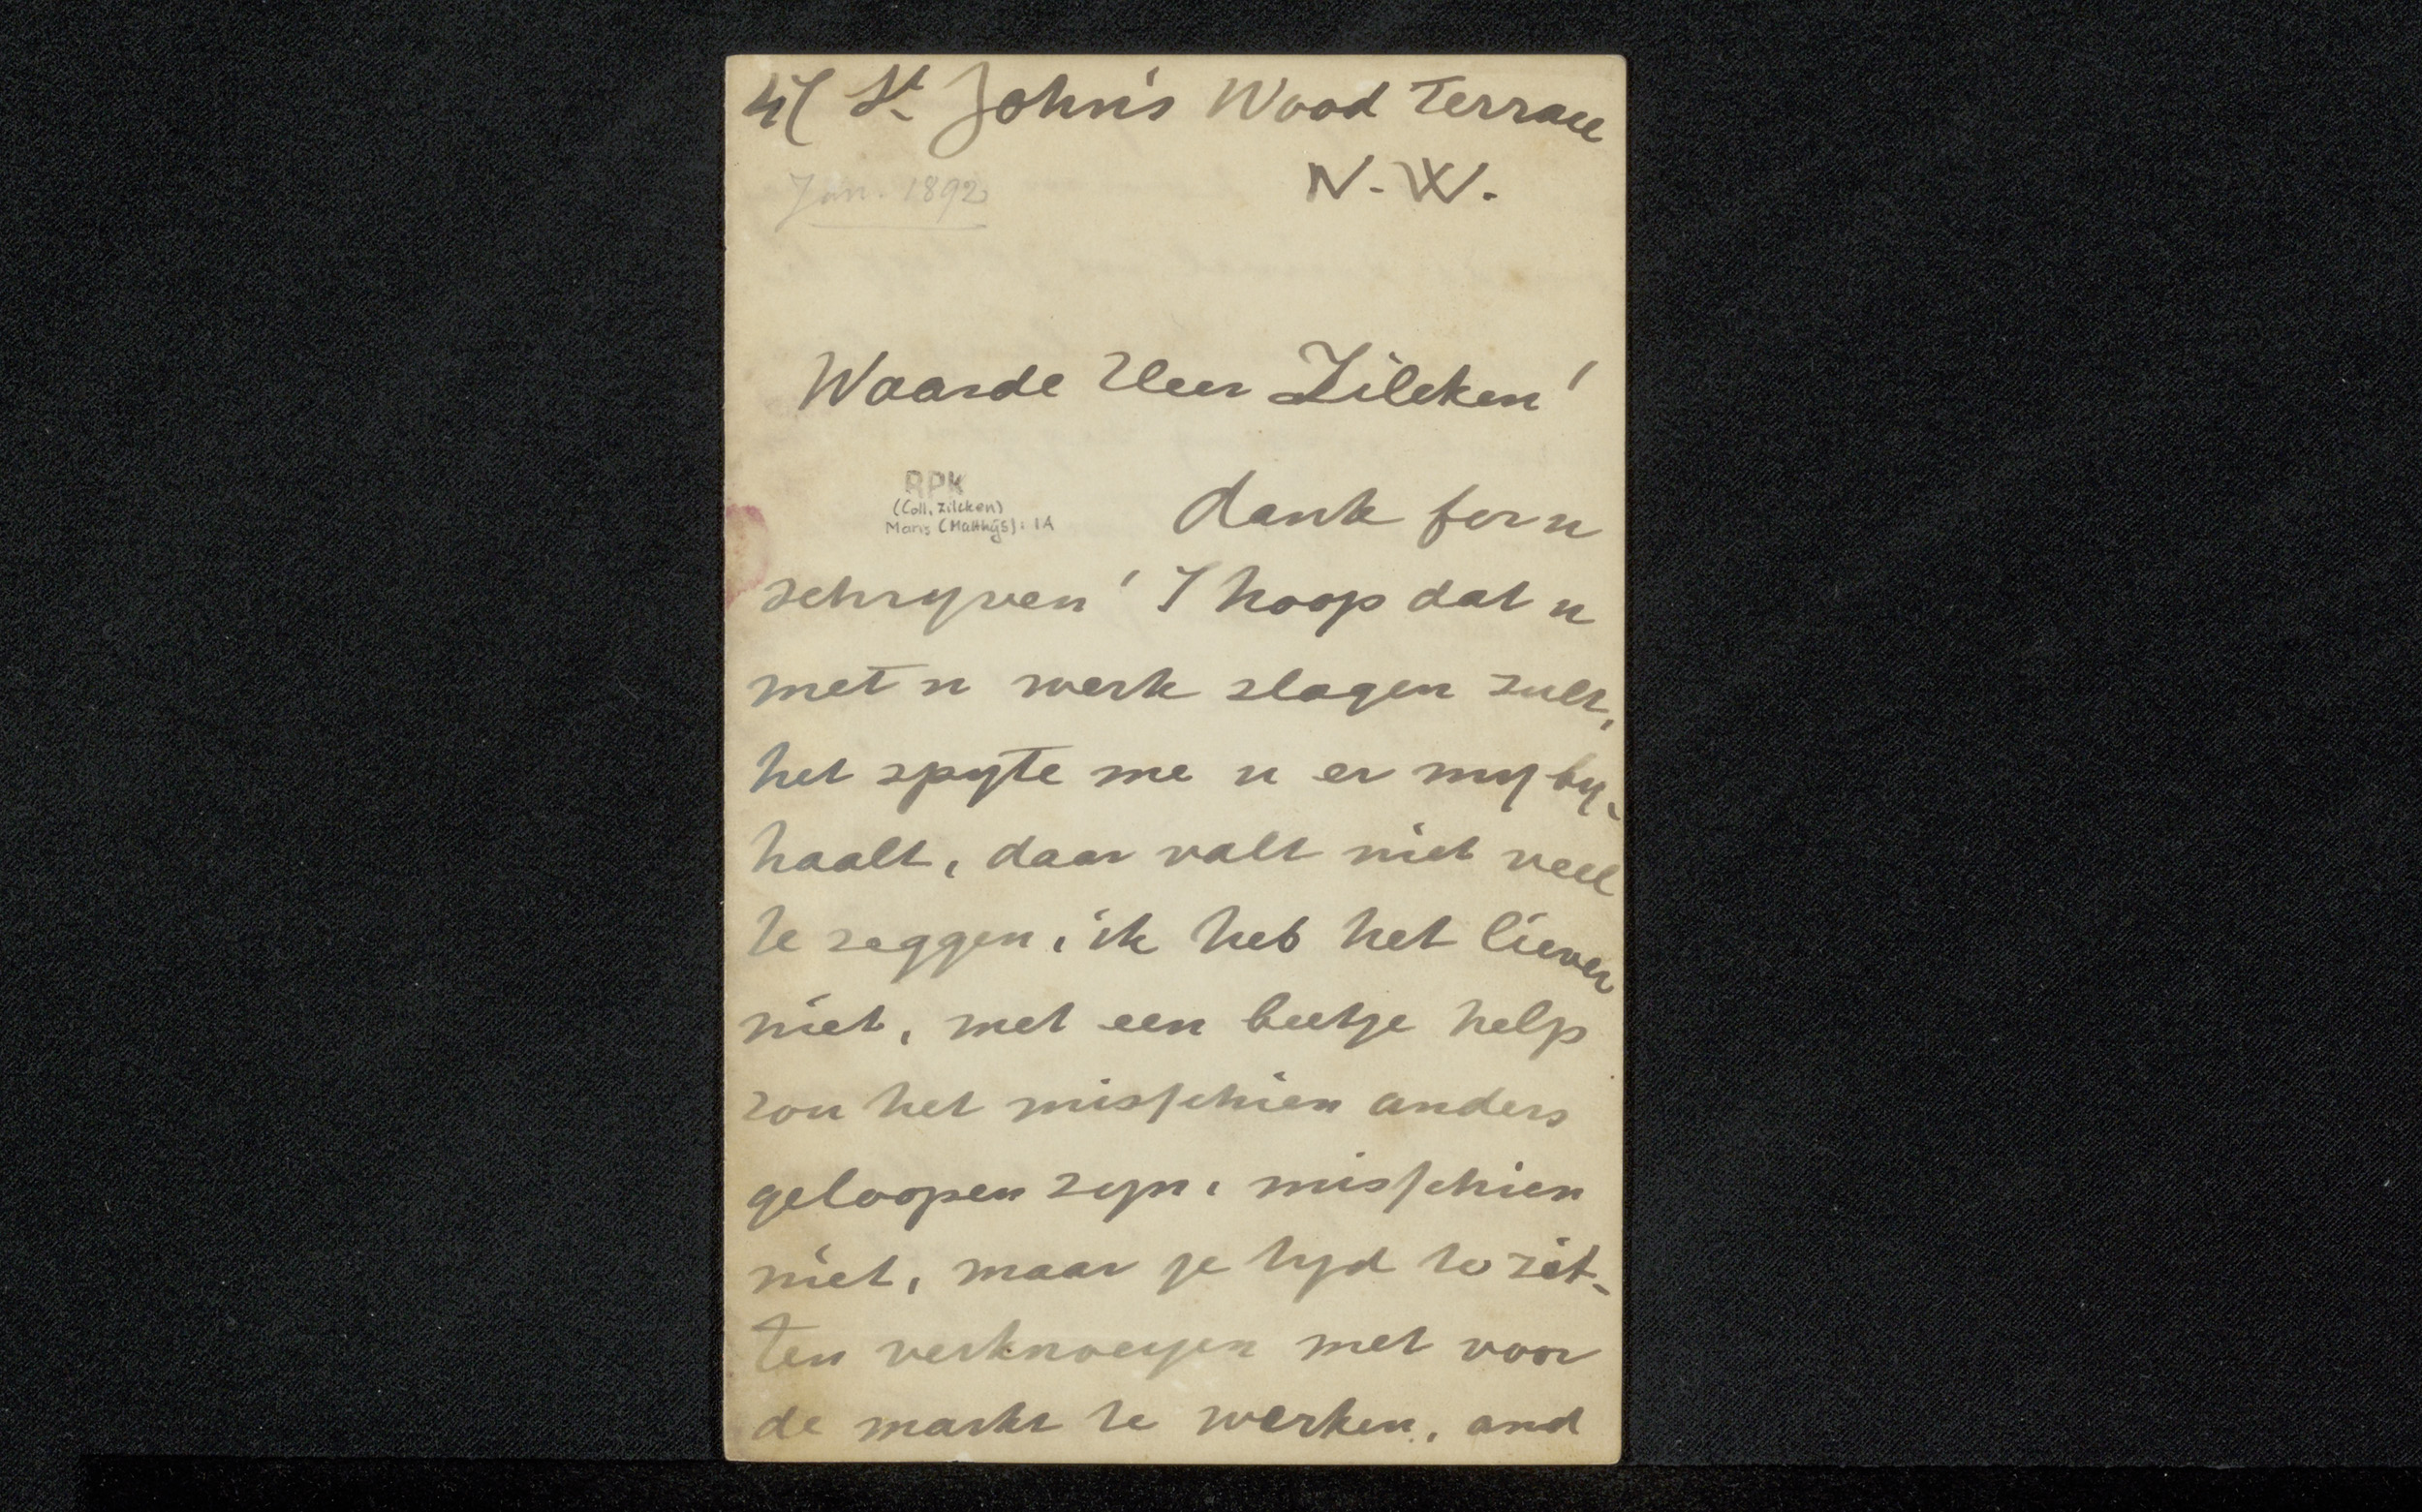 47 St John's Wood Terrace
N.W.
Jan. 1892
Waarde Heer Zilcken!
RPK
(Coll. Zilcken)
Maris (Matthijs): 1A
dank for u
schryven! I hoop dat u
met u werk slagen zult,
het spyte me u er my by-
haalt, daar valt niet veel
te zeggen, ik heb het liever
niet, met een beetje help
zou het misschien anders
geloopen zyn, misschien
niet, maar je tyd te zit-
ten verknoeyen met voor
de markt te werken, and